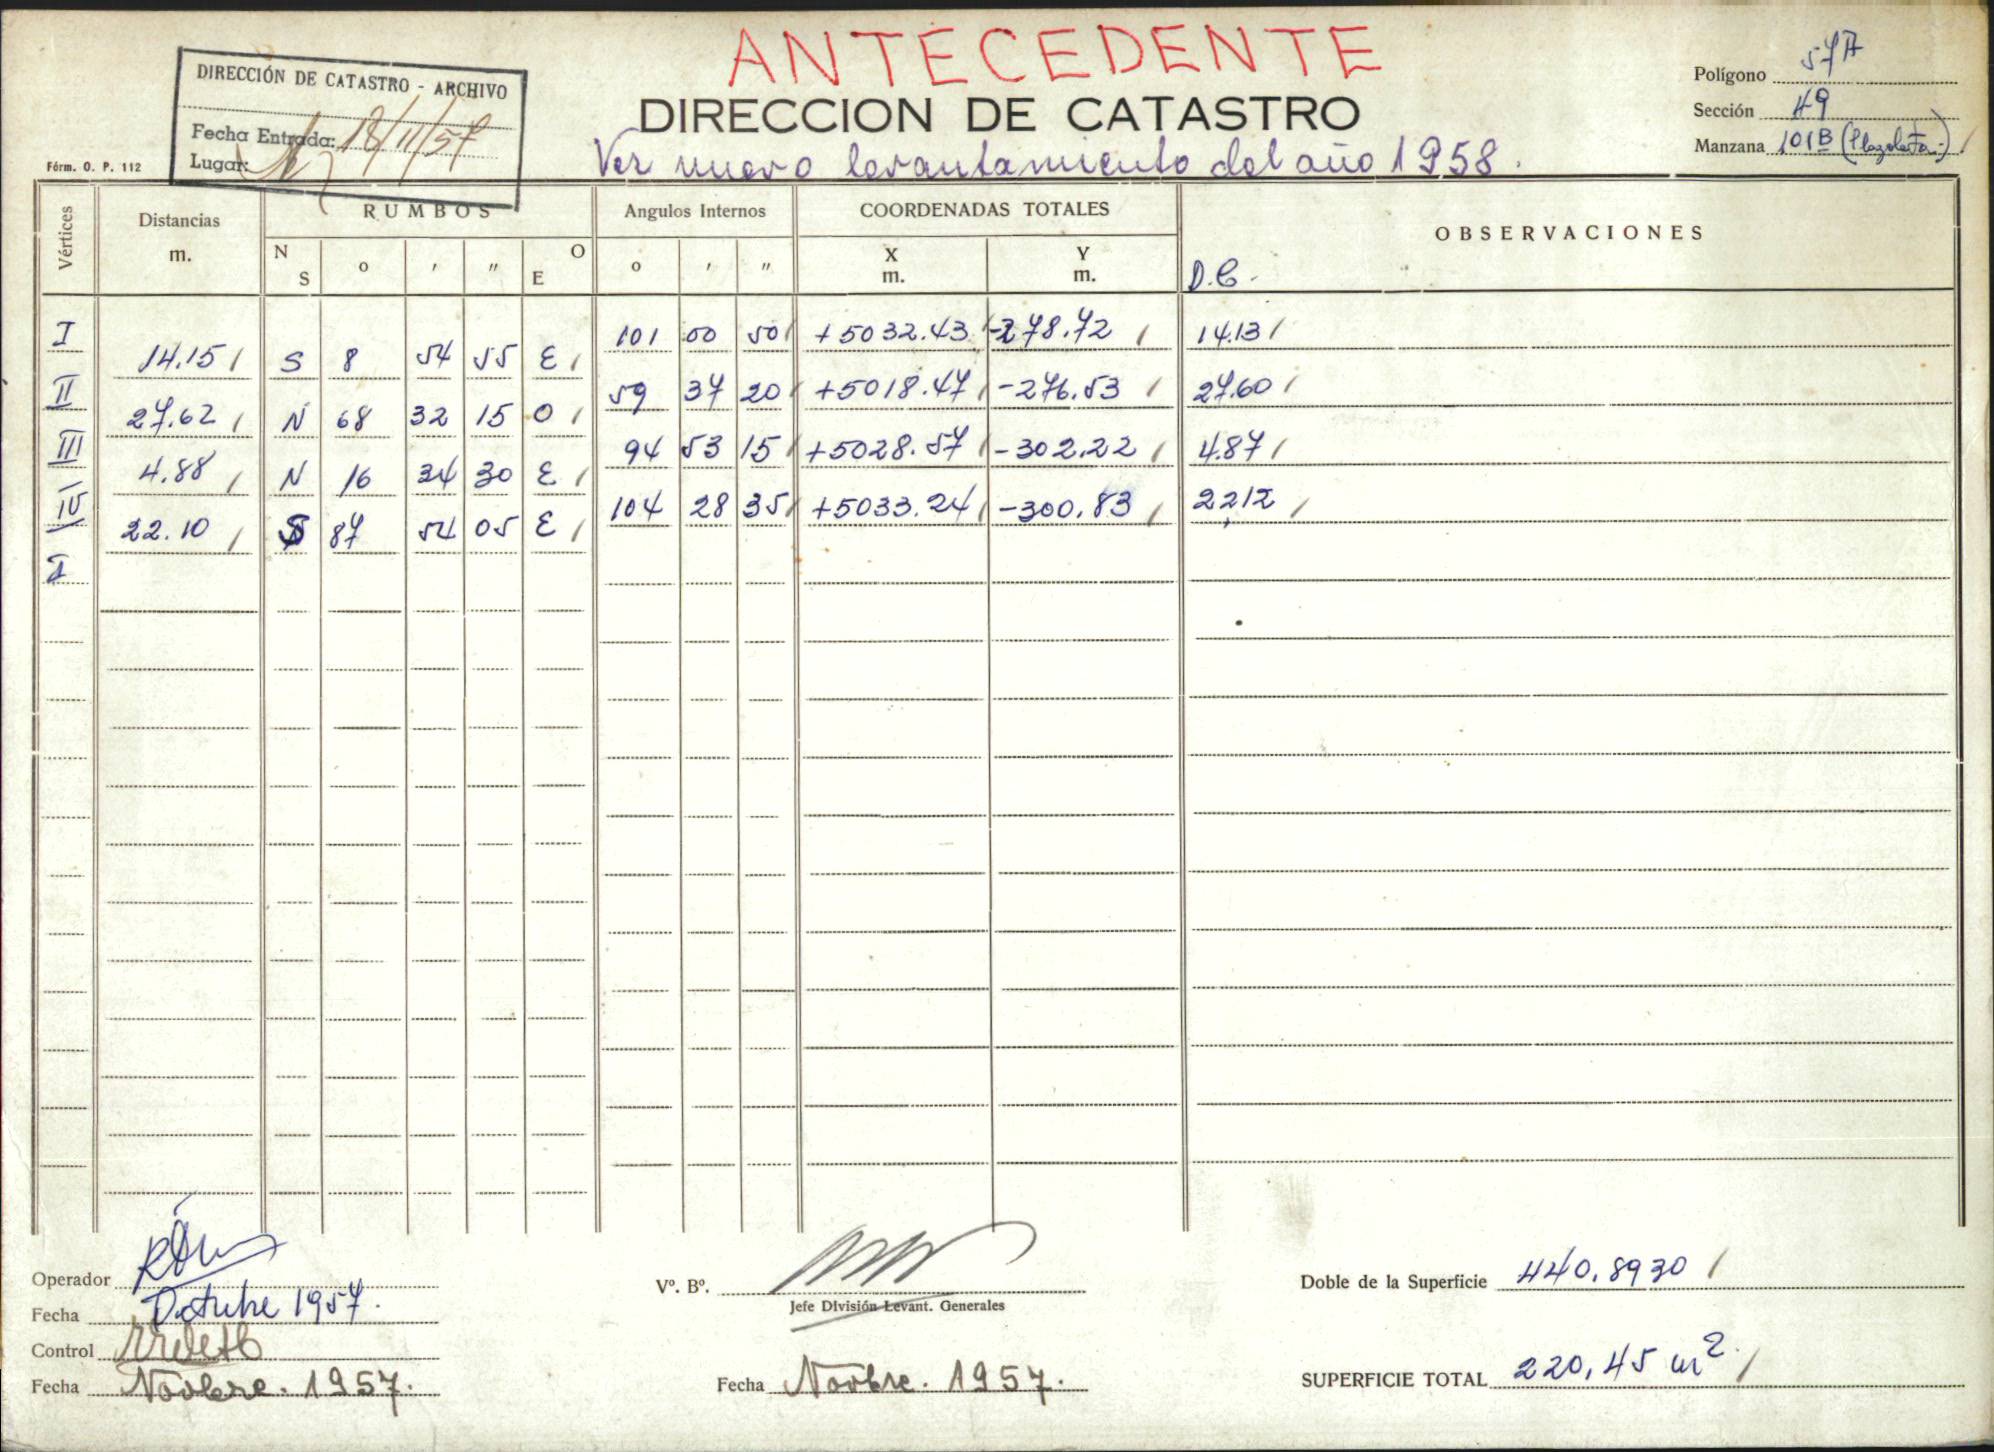 ANTECEDENTE
DIRECCIÓN DE CATASTRO - ARCHIVO
Fecha Entrada: 18/11/57
Lugar:
DIRECCION DE CATASTRO
Ver nuevo levantamiento del año 1958.
Polígono 57A
Sección 49
Manzana 101B (Plazoleta)
Fórm. O. P. 112
Vértices Distancias m. RUMBOS Angulos Internos COORDENADAS TOTALES OBSERVACIONES
N S ° ' " O E ° ' " X m. Y m. D.C.
I 101 00 50 +5032.43 -278.72 14.13
14.15 S 8 54 55 E
II 59 37 20 +5018.47 -276.53 27.60
27.62 N 68 32 15 O
III 94 53 15 +5028.57 -302.22 4.87
4.88 N 16 34 30 E
IV 104 28 35 +5033.24 -300.83 22.12
22.10 S 87 54 05 E
I
Operador
Fecha Octubre 1957.
Control
Fecha Novbre. 1957.
Vº. Bº.
Jefe División Levant. Generales
Fecha Novbre. 1957.
Doble de la Superficie 440.8930
SUPERFICIE TOTAL 220,45 m².